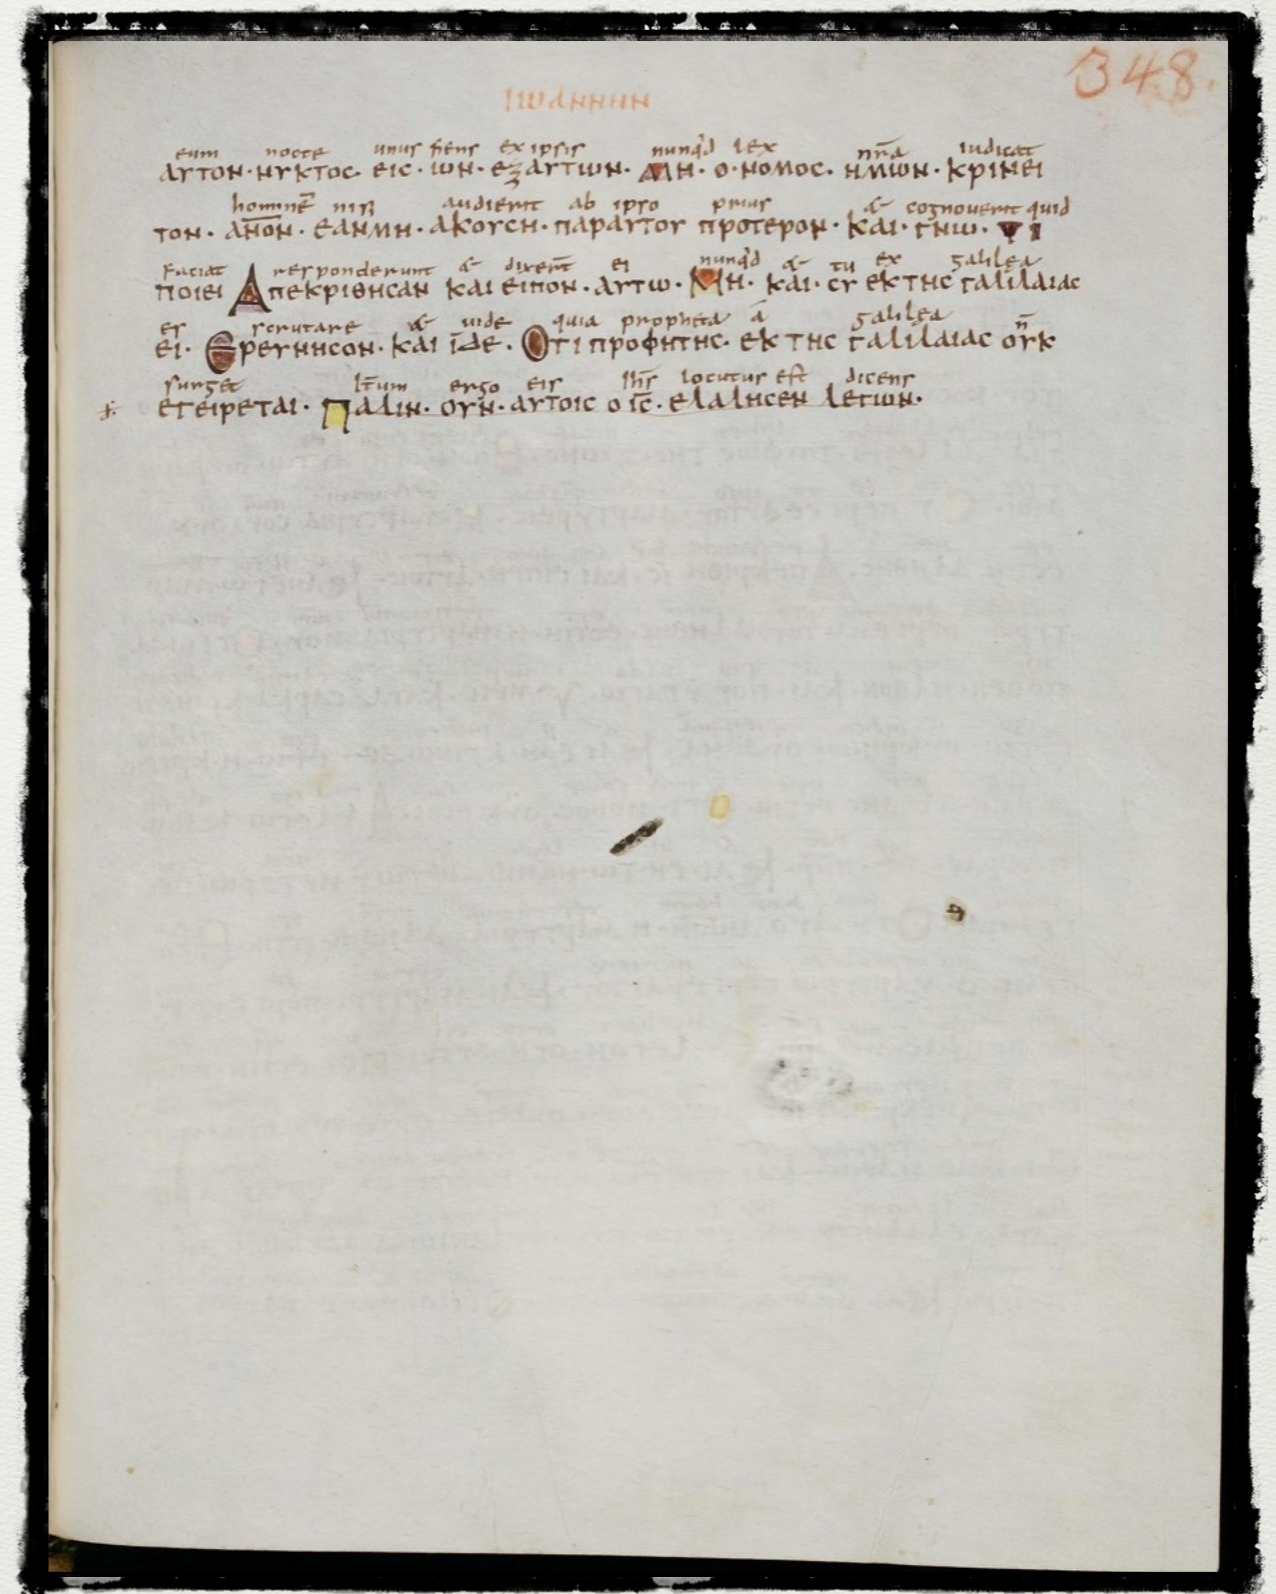 348.
ΙωΑΝΝΗΝ
eum nocte unus fiens ex ipsis nunqd lex nr̄a iudicat
ΑΥΤΟΝ· ΝΥΚΤΟC· ΕΙC· ΙωΝ· ΕΞΑΥΤΙωΝ· ΜΗ· Ο· ΝΟΜΟC· ΗΜΙωΝ· ΚΡΙΝΕΙ
hominē nisi audierit ab ipso prius & cognouerit quid
ΤΟΝ· ΑΝ̄ΟΝ· ΕΑΝΜΗ· ΑΚΟΥCΗ· ΠΑΡΑΥΤΟΥ ΠΡΟΤΕΡΟΝ· ΚΑΙ· ΓΝΙω· ΤΙ
faciat responderunt & dixer̄t ei nunqd & tu ex galilęa
ΠΟΙΕΙ ΑΠΕΚΡΙΘΗCΑΝ ΚΑΙ ΕΙΠΟΝ· ΑΥΤω· ΜΗ· ΚΑΙ· CΥ ΕΚ ΤΗC ΓΑΛΙΛΑΙΑC
es scrutare & uide quia propheta a galilęa n̄
ΕΙ· ΕΡΕΥΝΗCΟΝ· ΚΑΙ ΙΔΕ· ΟΤΙ ΠΡΟΦΗΤΗC· ΕΚ ΤΗC ΓΑΛΙΛΑΙΑC ΟΥΚ
surget It̄um ergo eis Ih̄s locutus est dicens
ΕΓΕΙΡΕΤΑΙ· ΠΑΛΙΝ· ΟΥΝ· ΑΥΤΟΙC Ο ΙC̄· ΕΛΑΛΗCΕΝ ΛΕΓΙωΝ·